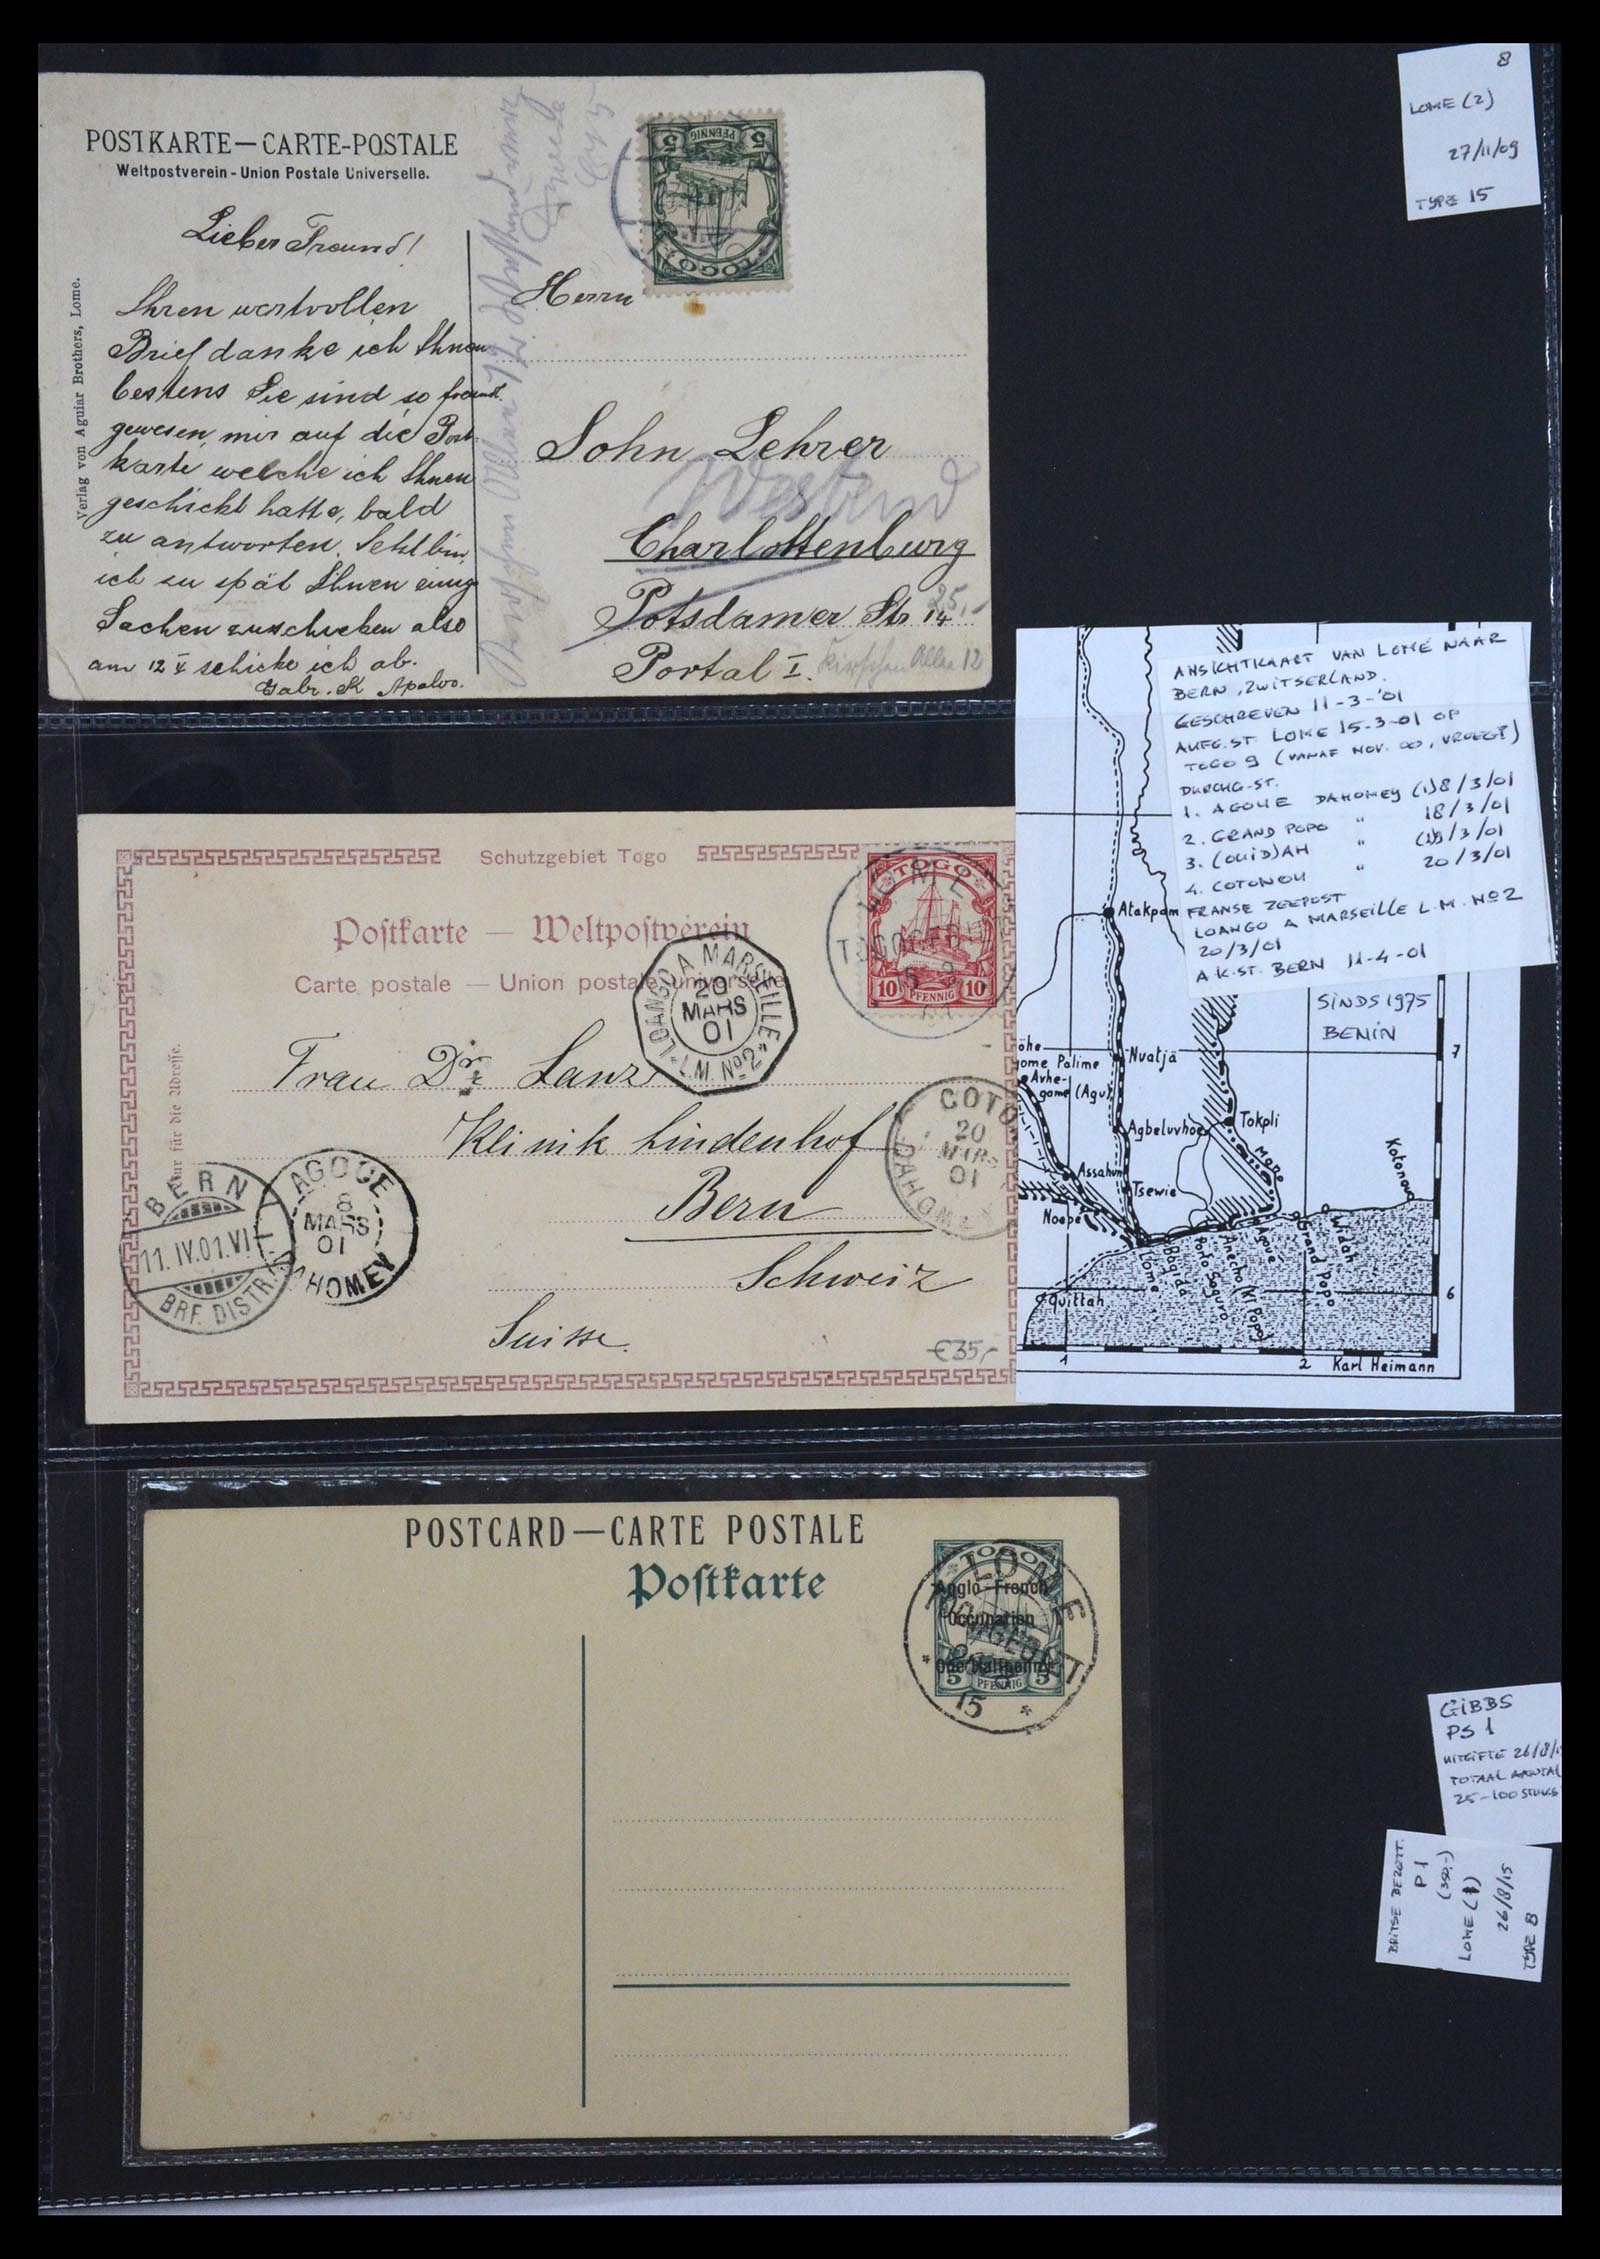 8
LOME (2)
27/11/09
TYPE 15
POSTKARTE — CARTE-POSTALE
Weltpostverein - Union Postale Universelle.
Verlag von Aguiar Brothers, Lome.
5 PFENNIG 5
TOGO
Lieber Freund!
Ihren wertvollen
Brief danke ich Ihnen
bestens Sie sind so freundl.
gewesen, mir auf die Post-
karte welche ich Ihnen
geschickt hatte, bald
zu antworten. Jetzt bin
ich zu spät Ihnen einige
Sachen zuschicken also
am 12 V schicke ich ab.
Gabr. K Apaloo.
Herrn
John Lehrer
Westend
Charlottenburg
Potsdamer Str 14
25,-
Portal I.
Kirschen Allee 12
Schutzgebiet Togo
Postkarte — Weltpostverein
Carte postale — Union postale universelle
Nur für die Adresse.
TOGO
10 PFENNIG 10
LOME
TOGOGEBIET
15 3
LOANGO A MARSEILLE
20
MARS
01
L.M. No 2
Frau Dr. Lanz
Klinik Lindenhof
Bern
Schweiz
Suisse.
€35,-
COTO
20
MARS
01
DAHOMEY
AGOUE
8
MARS
01
DAHOMEY
BERN
11. IV. 01. VI
BRF. DISTR.
ANSICHTKAART VAN LOME NAAR
BERN, ZWITSERLAND.
GESCHREVEN 11-3-'01
AUFG.ST. LOME 15-3-01 OP
TOGO 9 (VANAF NOV. 00, VROEGT)
DURCHG-ST.
1. AGOUE DAHOMEY (1)8/3/01
2. GRAND POPO " 18/3/01
3. (OUID)AH " (1)9/3/01
4. COTONOU " 20/3/01
FRANSE ZEEPOST
LOANGO A MARSEILLE L.M. No 2
20/3/01
A.K.ST. BERN 11-4-01
SINDS 1975
BENIN
Atakpam
Nuatjä
7
öhe
ome Palime
Avhe-
game (Agu)
Agbeluvhoe
Tokpli
Mono
Kotonou
Assahun
Tsewie
Noepe
Lome
Bagida
Porto Seguro
Anecho (Kl Popo)
Agoué
Grand Popo
Widah
Quittah
6
1
2
Karl Heimann
POSTCARD—CARTE POSTALE
Postkarte
TOGO
Anglo-French
Occupation
One Halfpenny
5 PFENNIG 5
LOME
TOGOGEBIET
15
GIBBS
PS 1
UITGIFTE 26/8/
TOTAAL AANTAL
25-100 STUKS
BRITSE BEZETT.
P1
(350,-)
LOME (1)
26/8/15
TYPE 8